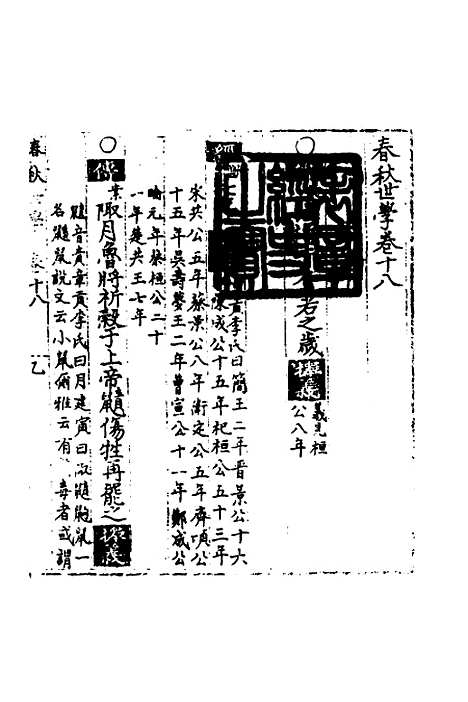 春秋世學卷十八
若之歲
義見桓
公八年
李氏曰簡王二年晉景公十六
陳成公十五年杞桓公五十三年
宋共公五年蔡景公八年衛定公五年齊頃公
十五年吳壽夢王二年曹宣公十一年鄭成公
元年秦桓公二十
一年楚共王七年
傳
陬月魯將祈穀于上帝鼷傷牲再罷之
音貴章貢李氏曰月建寅曰陬鼷鼷鼠一
名鼷鼠說文云小鼠爾雅云有毒者或謂
春秋
卷十八
乙